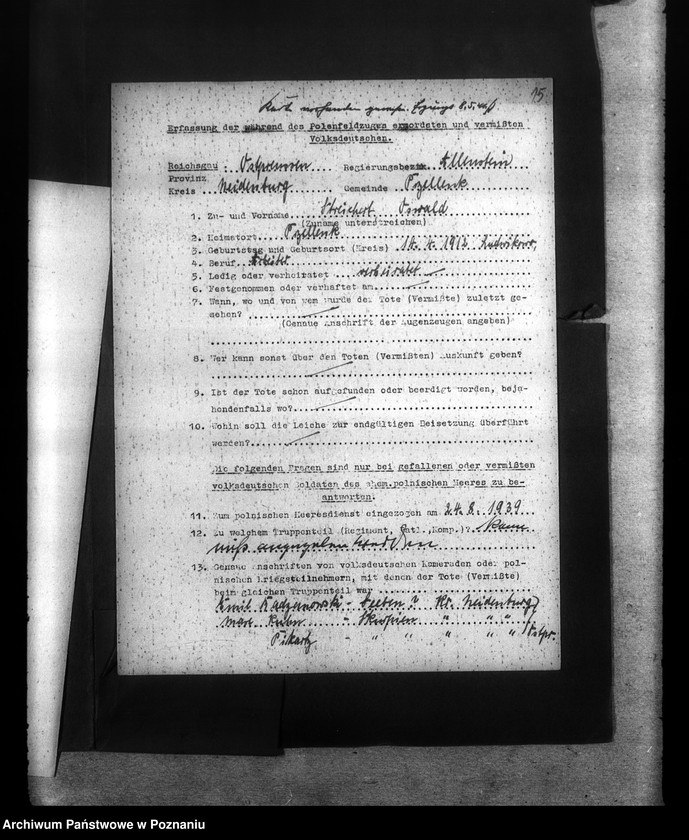 15
Karte vorhanden
Erfassung der während des Polenfeldzuges ermordeten und vermißten
Volksdeutschen.
Reichsgau : Ostpreussen Regierungsbezirk Allenstein
Provinz
Kreis Neidenburg Gemeinde
1. Zu- und Vorname Streichert Oswald
(Zuname unterstreichen)
2. Heimatort
3. Geburtstag und Geburtsort (Kreis) 1912
4. Beruf Arbeiter
5. Ledig oder verheiratet verheiratet
6. Festgenommen oder verhaftet am
7. Wann, wo und von wem wurde der Tote (Vermißte) zuletzt ge-
sehen?
(Genaue Anschrift der Augenzeugen angeben)
8. Wer kann sonst über den Toten (Vermißten) Auskunft geben?
9. Ist der Tote schon aufgefunden oder beerdigt worden, beja-
hendenfalls wo?
10. Wohin soll die Leiche zur endgültigen Beisetzung überführt
werden?
Die folgenden Fragen sind nur bei gefallenen oder vermißten
volksdeutschen Soldaten des ehem.polnischen Heeres zu be-
antworten.
11. Zum polnischen Heeresdienst eingezogen am 24.8.1939
12. Zu welchem Truppenteil (Regiment, Btl.,Komp.)? Kann
angegeben werden
13. Genaue Anschriften von volksdeutschen Kameraden oder pol-
nischen Kriegsteilnehmern, mit denen der Tote (Vermißte)
beim gleichen Truppenteil war
Emil - Kr. Neidenburg
" " "
- " " " " " Ostpr.
Archiwum Państwowe w Poznaniu